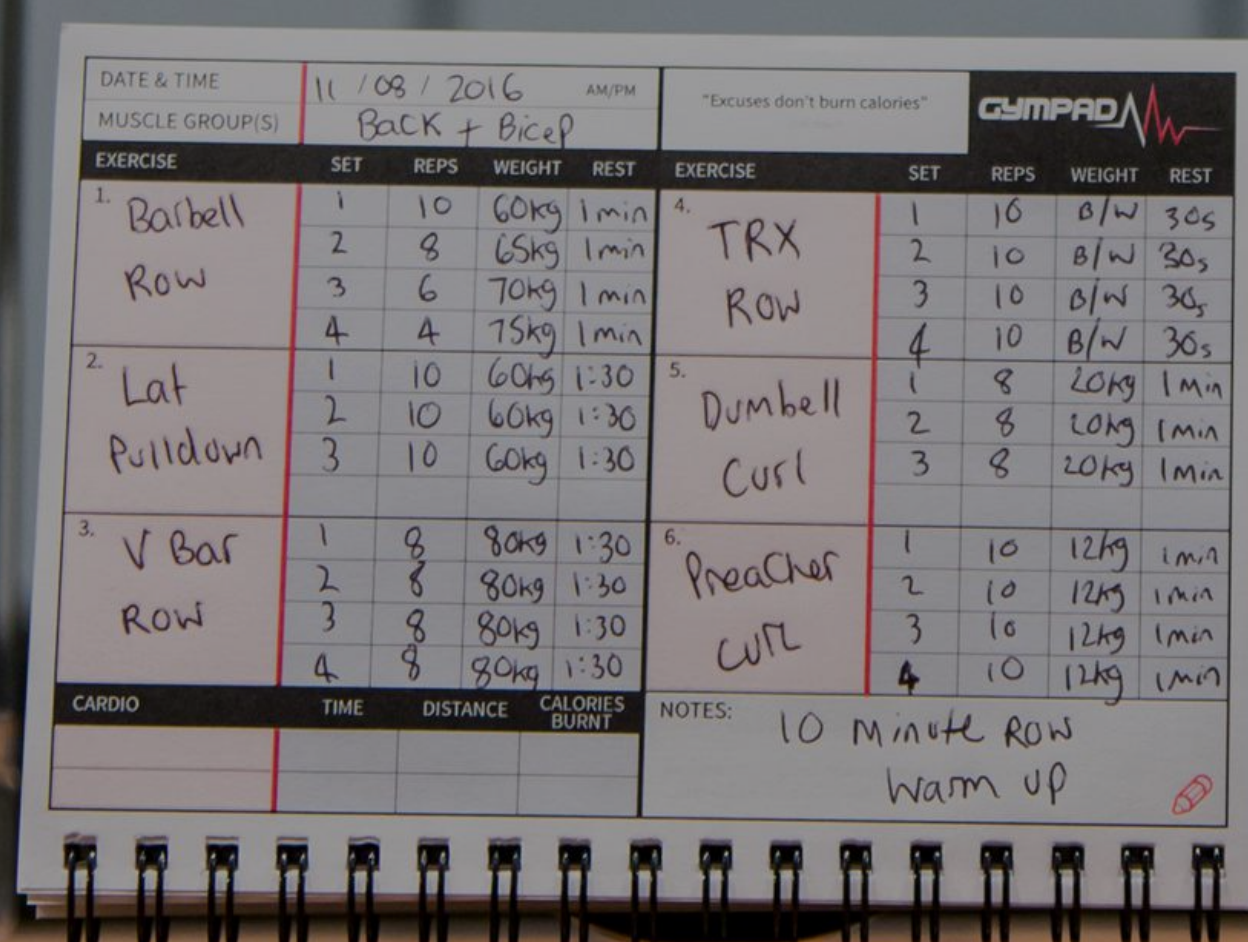 DATE & TIME 11 / 08 / 2016 AM/PM
MUSCLE GROUP(S) Back + Bicep
"Excuses don't burn calories"
GYMPAD
EXERCISE SET REPS WEIGHT REST
1. Barbell Row
1 10 60kg 1 min
2 8 65kg 1 min
3 6 70kg 1 min
4 4 75kg 1 min
2. Lat Pulldown
1 10 60kg 1:30
2 10 60kg 1:30
3 10 60kg 1:30
3. V Bar Row
1 8 80kg 1:30
2 8 80kg 1:30
3 8 80kg 1:30
4 8 80kg 1:30
CARDIO TIME DISTANCE CALORIES BURNT
EXERCISE SET REPS WEIGHT REST
4. TRX Row
1 10 B/W 30s
2 10 B/W 30s
3 10 B/W 30s
4 10 B/W 30s
5. Dumbell Curl
1 8 20kg 1 min
2 8 20kg 1 min
3 8 20kg 1 min
6. Preacher Curl
1 10 12kg 1 min
2 10 12kg 1 min
3 10 12kg 1 min
4 10 12kg 1 min
NOTES: 10 Minute Row
Warm up